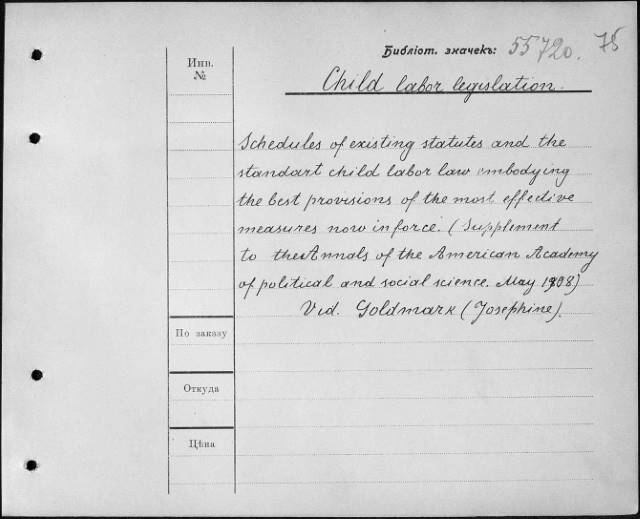 Библіот. значекъ: 55720. 75
Инв.
№
Child labor legislation.
Schedules of existing statutes and the
standart child labor law embodying
the best provisions of the most effective
measures now in force. (Supplement
to the Annals of the American Academy
of political and social science. May 1908)
Vid. Goldmark (Josephine).
По заказу
Откуда
Цѣна